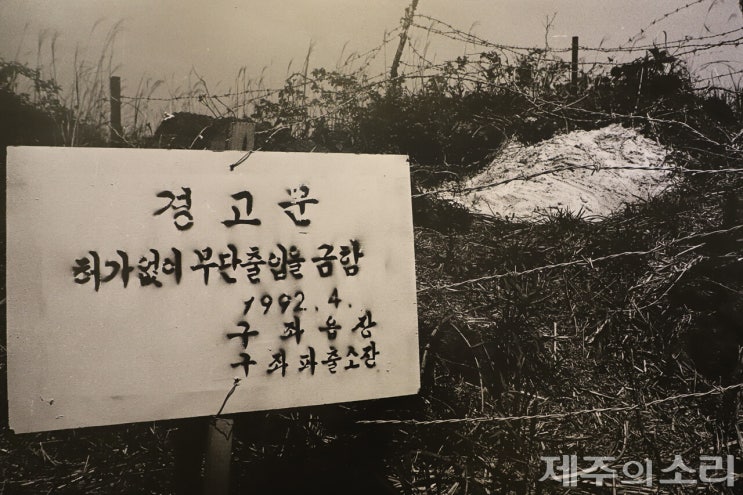 경고문
허가없이 무단출입을 금함
1992.4.
구좌읍장
구좌파출소장
제주의소리